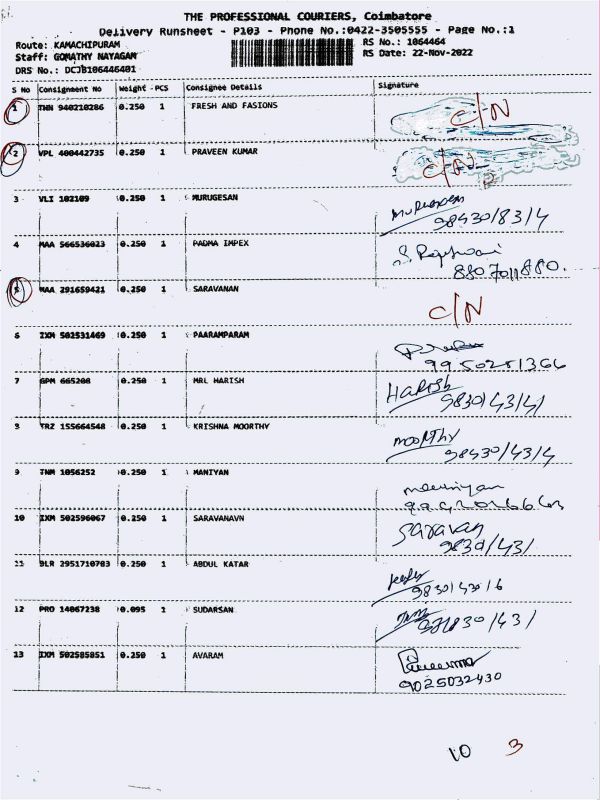 THE PROFESSIONAL COURIERS, Coimbatore
Delivery Runsheet - P103 - Phone No.:0422-3505555 - Page No.:1
Route: KAMACHIPURAM RS No.: 1064464
Staff: GOMATHY NAYAGAM RS Date: 22-Nov-2022
DRS No.: DCJB106446401
S No Consignment No Weight - PCS Consignee Details Signature
1 940210286 0.250 1 FRESH AND FASIONS C/N
2 VPL 400442735 0.250 1 PRAVEEN KUMAR C/N
3 VLI 102109 0.250 1 MURUGESAN
98430/83/4
4 MAA 566536023 0.250 1 PADMA IMPEX
5 MAA 291659421 0.250 1 SARAVANAN C/N
6 IXM 502531469 0.250 1 PAARAMPARAM
9950251366
7 GPM 665208 0.250 1 MRL HARISH HARISH
9830/43/4/
8 TRZ 155664548 0.250 1 KRISHNA MOORTHY MOORTHY
98430/43/4
9 TNM 1056252 0.250 1 MANIYAN
10 IXM 502596067 0.250 1 SARAVANAVN Saravan
9830/43/
11 BLR 2951710703 0.250 1 ABDUL KATAR
12 PRO 14067238 0.095 1 SUDARSAN
13 IXM 502585851 0.250 1 AVARAM
9025032430
10 3